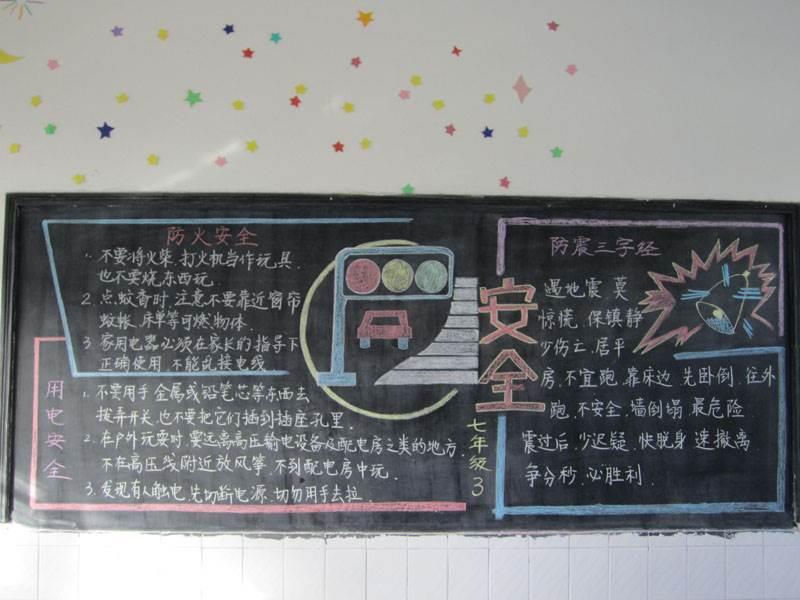 防火安全
1. 不要将火柴、打火机当作玩具,
也不要烧东西玩.
2. 点蚊香时,注意不要靠近窗帘
蚊帐、床单等可燃物体.
3. 家用电器必须在家长的指导下
正确使用,不能乱接电线
用电安全
1. 不要用手、金属或铅笔芯等东西去
拨弄开关,也不要把它们插到插座孔里.
2. 在户外玩耍时,要远离高压输电设备及配电房之类的地方.
不在高压线附近放风筝,不到配电房中玩.
3. 发现有人触电,先切断电源,切勿用手去拉.
安全
七年级3
防震三字经
遇地震,莫
惊慌,保镇静
少伤亡,居平
房,不宜跑,靠床边,先卧倒,往外
跑,不安全,墙倒塌,最危险.
震过后,少迟疑,快脱身,速撤离
争分秒,必胜利.